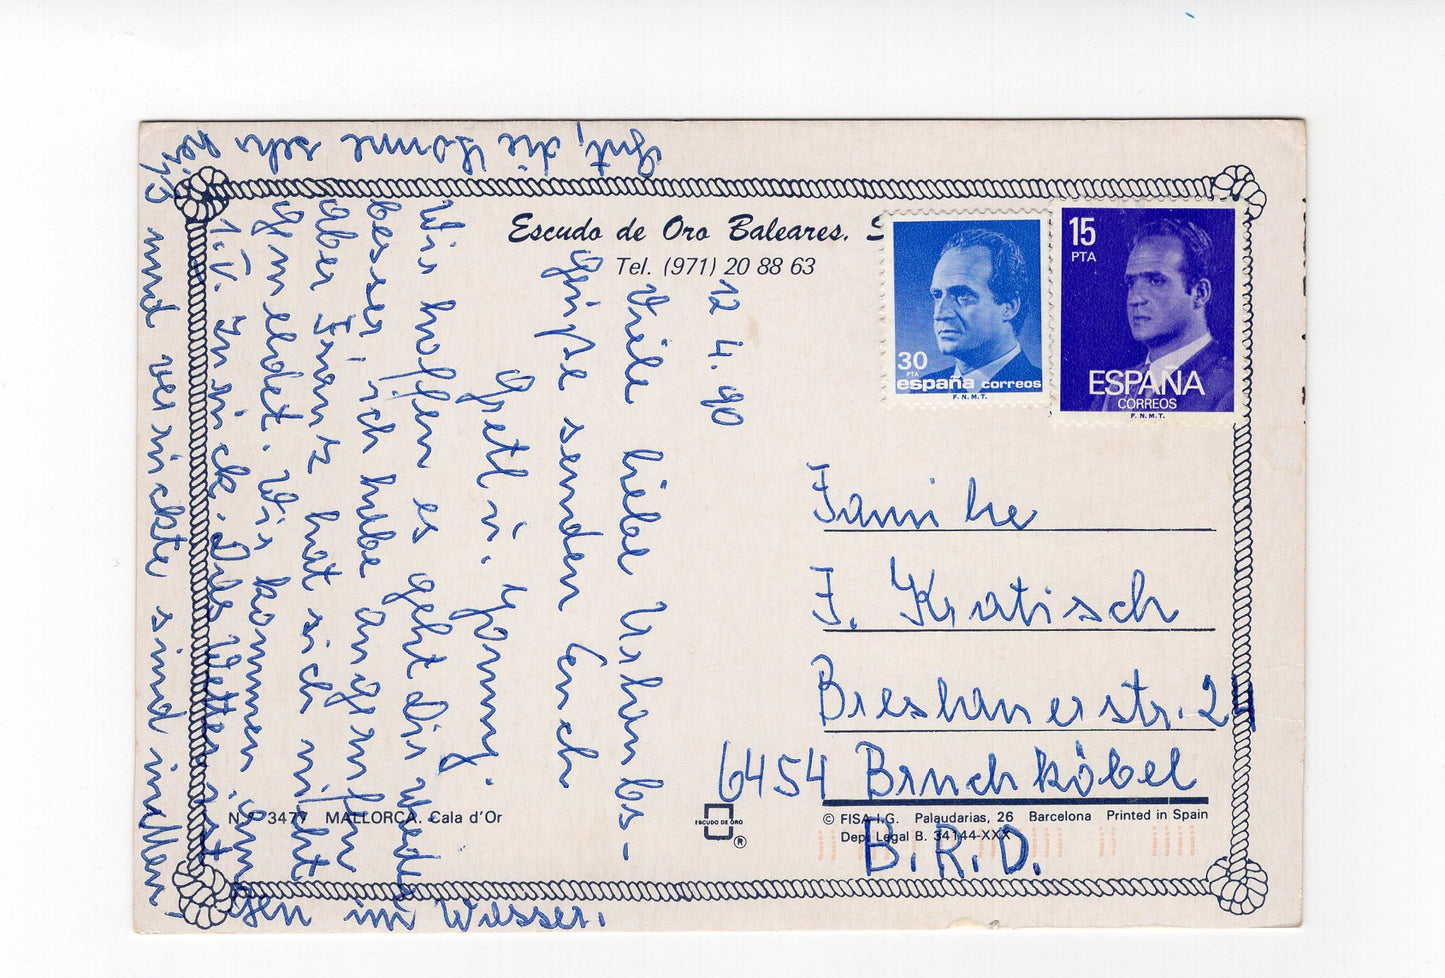 Escudo de Oro Baleares, S
Tel. (971) 20 88 63
30
PTA
españa correos
F.N.M.T.
15
PTA
ESPAÑA
CORREOS
F.N.M.T.
12 4. 90
Viele liebe Urlaubs-
grüße senden Euch
Gretl u.
Wir hoffen es geht dir wieder
besser, ich habe angerufen
aber Franz hat sich nicht
gemeldet. Wir kommen am
1.V. zurück. Das Wetter ist
gut, die Sonne sehr heiß
und verrückte sind indessen
im Wasser.
Familie
J. Kratisch
Breslauerstr. 24
6454 Bruchköbel
B.R.D.
N.º 3477 MALLORCA. Cala d'Or
ESCUDO DE ORO
®
© FISA I.G. Palaudarias, 26 Barcelona Printed in Spain
Dep. Legal B. 34144-XXX